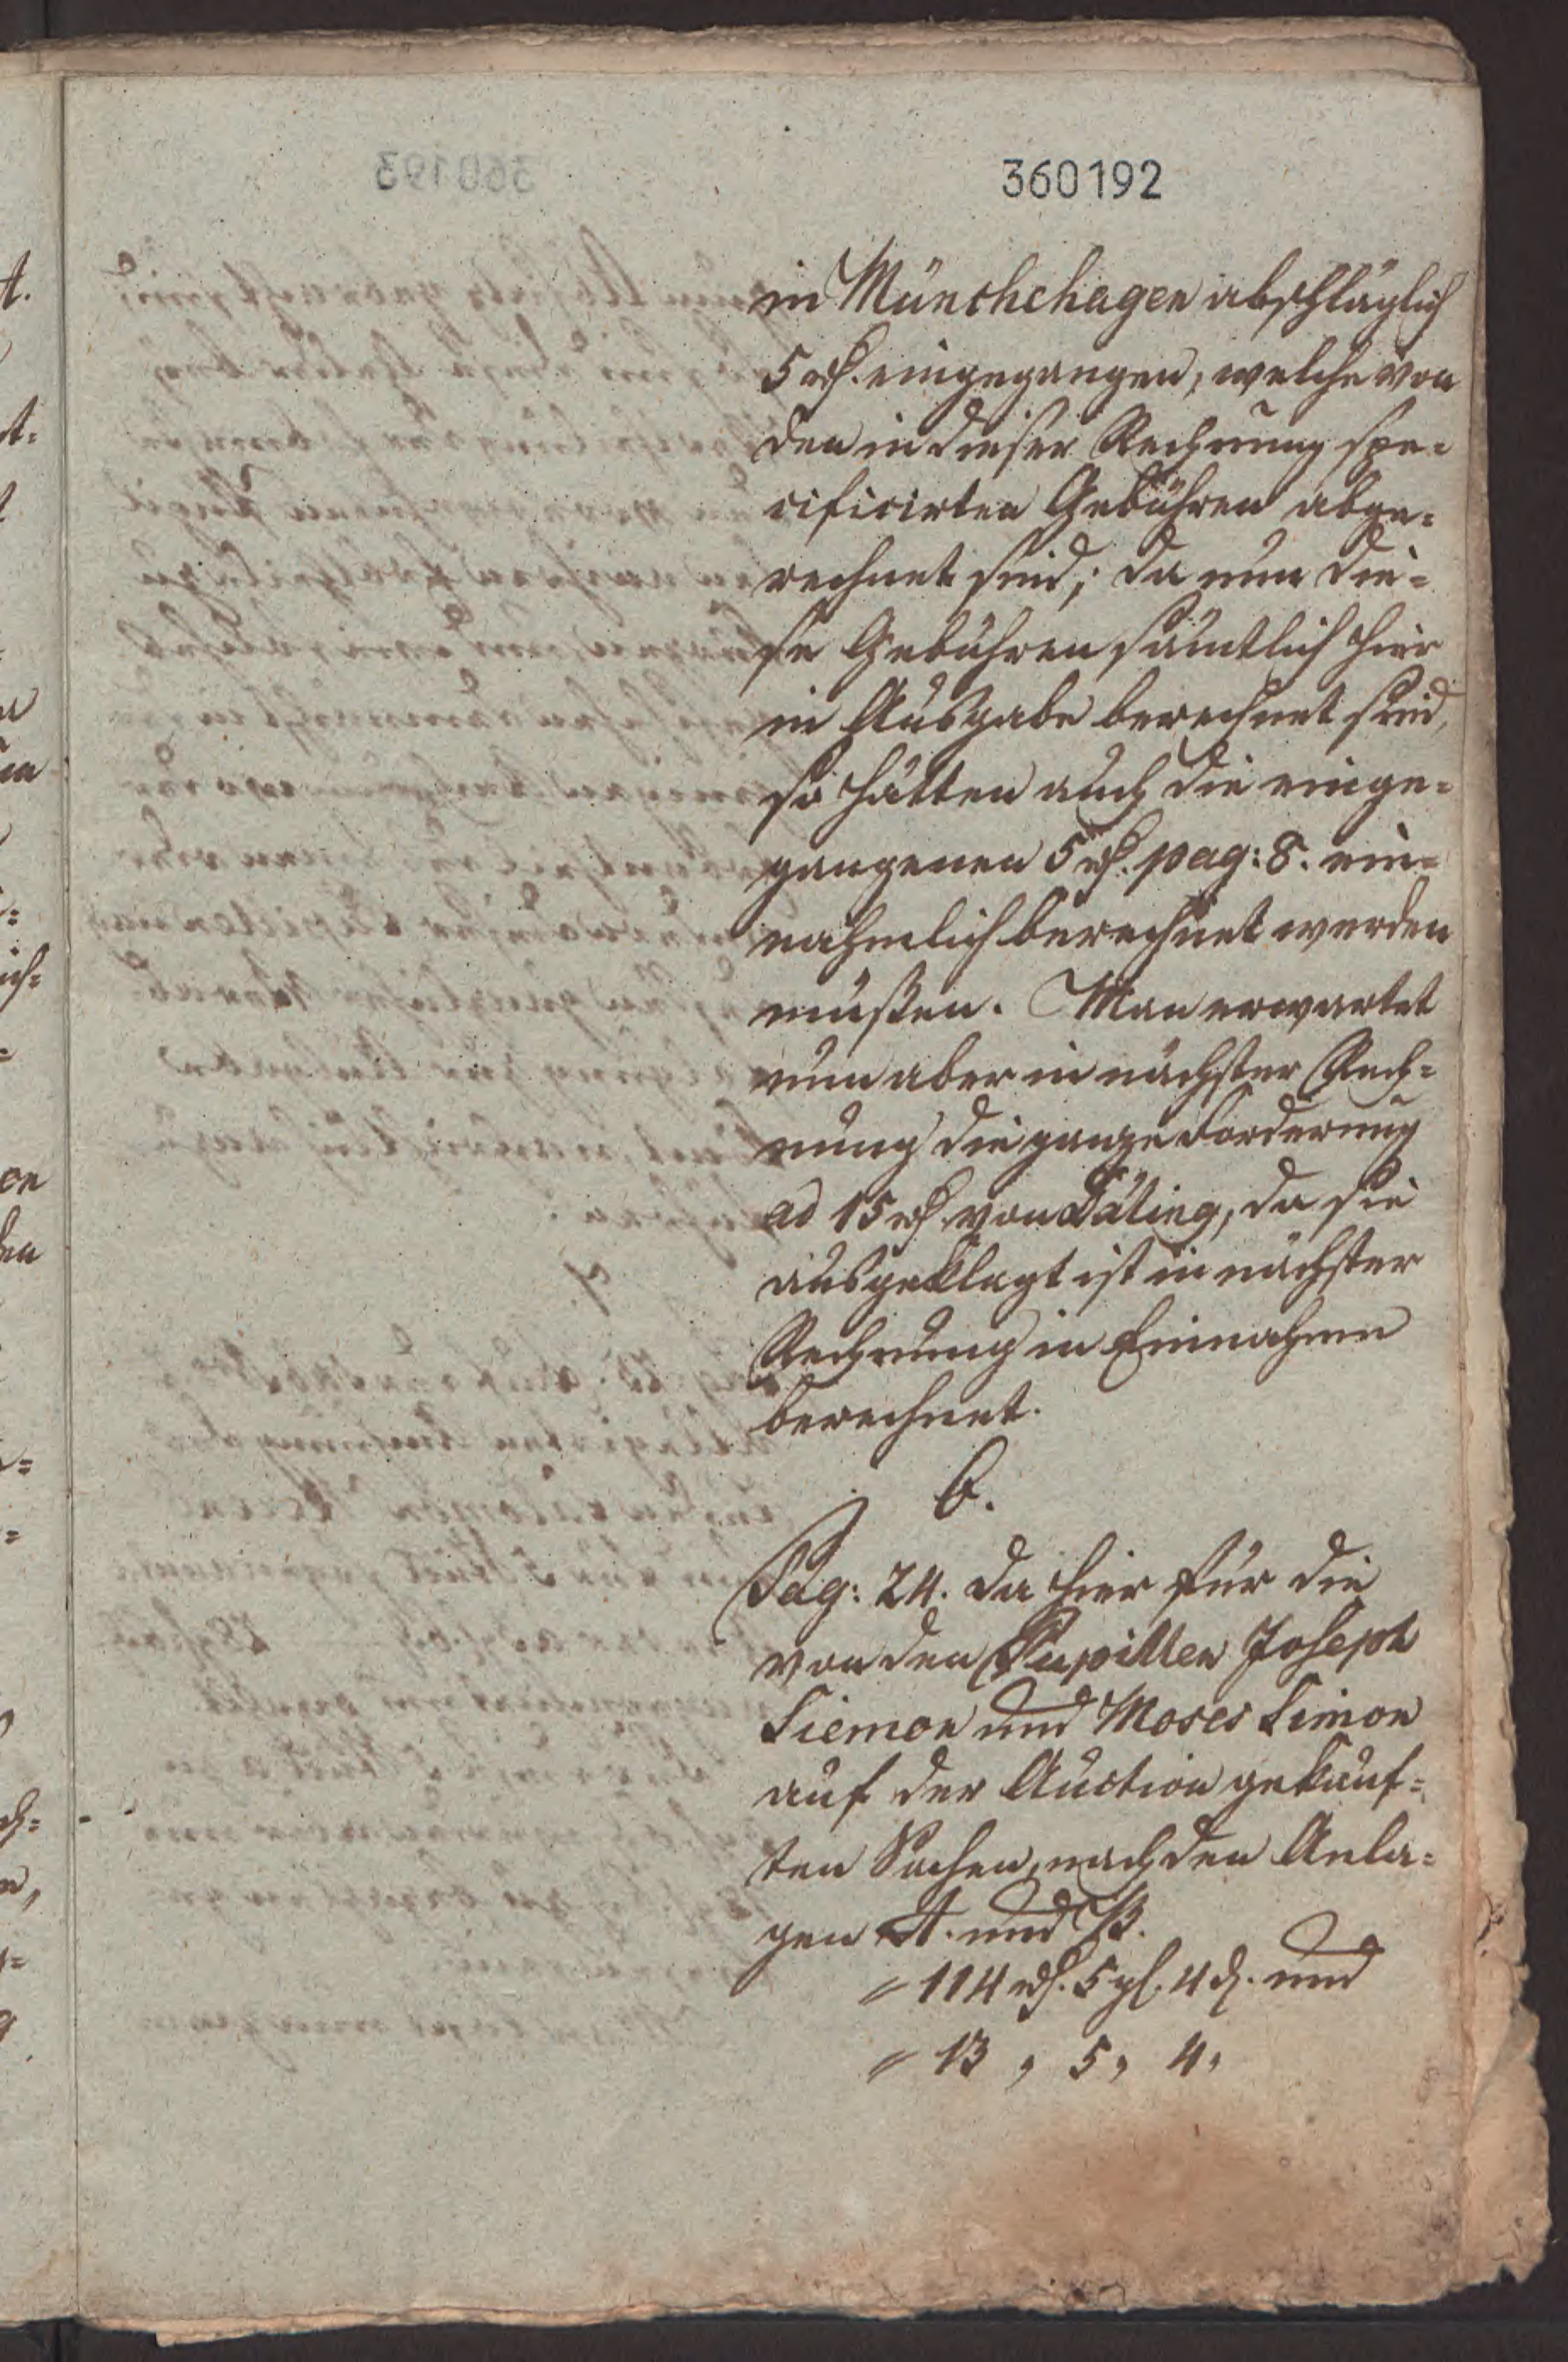 360192
in Münchehagen abschläglich
5 rh. eingegangen, welche von
den in dieser Rechnung spe=
cificirten Gebühren abge=
rechnet sind; da nun die=
se Gebühren sämtlich hier
in Ausgabe berechnet sind,
so hätten auch die einge=
gangenen 5 rh. pag: 8. ein=
nahmlich berechnet werden
müßen. Man erwartet
nun aber in nächster Rech=
nung die ganze Forderung
ad 15 rh. von Däting, da sie
ausgeklagt ist in nächster
Rechnung in Einnahme
berechnet.
6.
Pag: 24. da hier für die
von den Pupillen Joseph
Siemon und Moses Simon
auf der Auction gekauf=
ten Sachen, nach den Anla=
gen A. und B.
= 114 rh. 5 gl. 4 d. und
= 13 , 5 , 4 ,